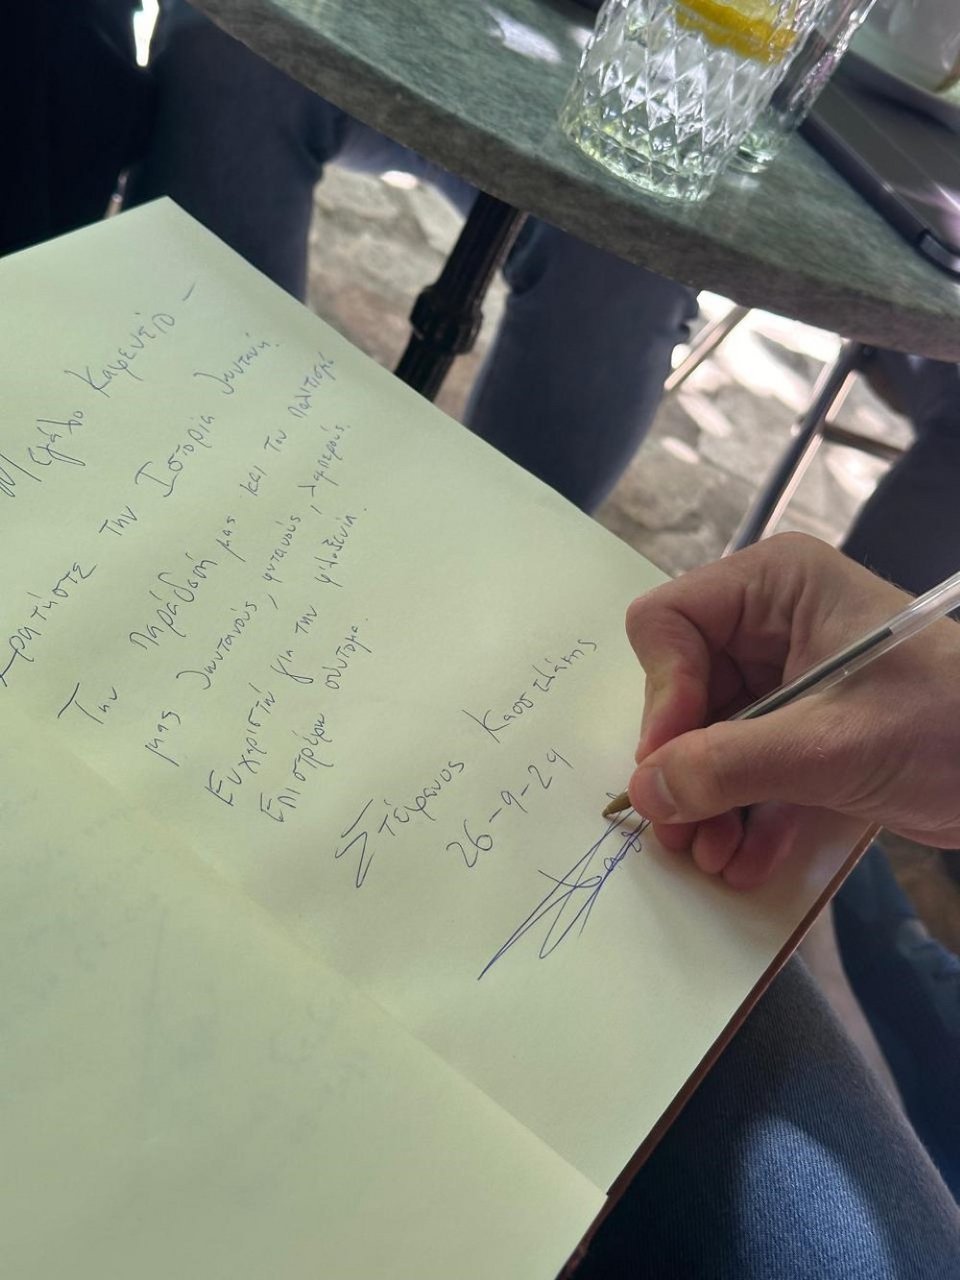 Μεγάλο Καφενείο –
Κρατήστε την Ιστορία ζωντανή.
Την παράδοσή μας και τον Πολιτισμό
μας ζωντανούς, φυτανούς, λαμπερούς.
Ευχαριστώ για την φιλοξενία.
Επιστρέφω σύντομα.
Στέφανος Κασσελάκης
26-9-24